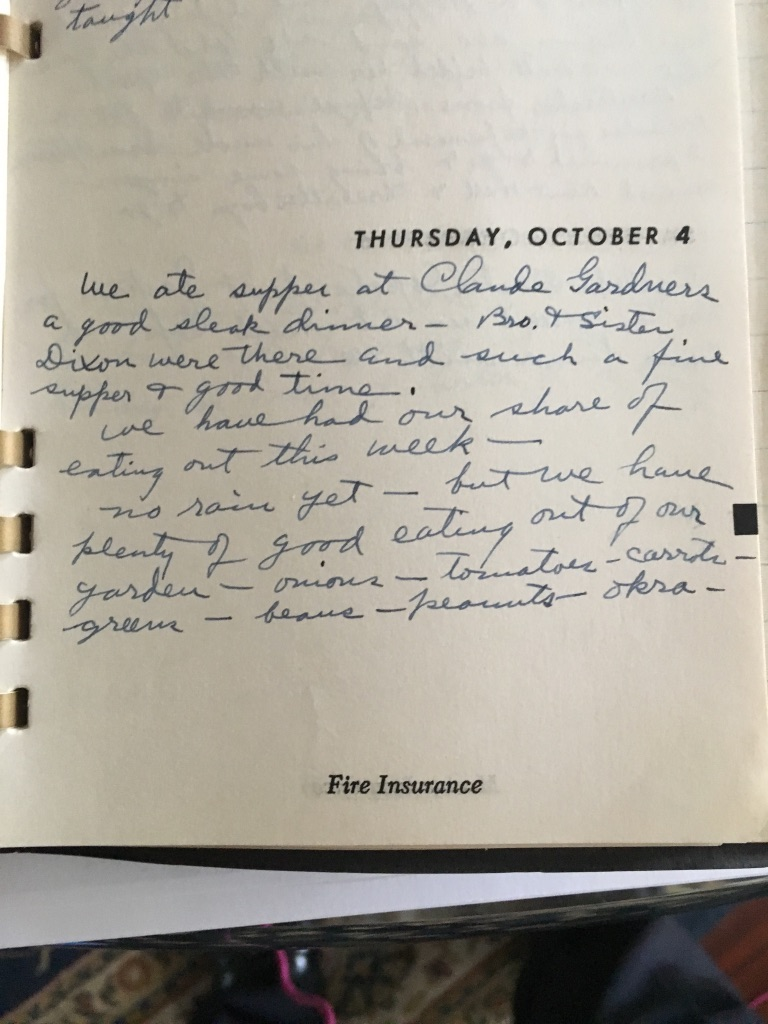 taught
THURSDAY, OCTOBER 4
We ate supper at Claude Gardners
a good steak dinner - Bro. & Sister
Dixon were there and such a fine
supper & good time.
we have had our share of
eating out this week —
no rain yet — but we have
plenty of good eating out of our
garden — onions — tomatoes - carrots -
greens — beans - peanuts - okra -
Fire Insurance